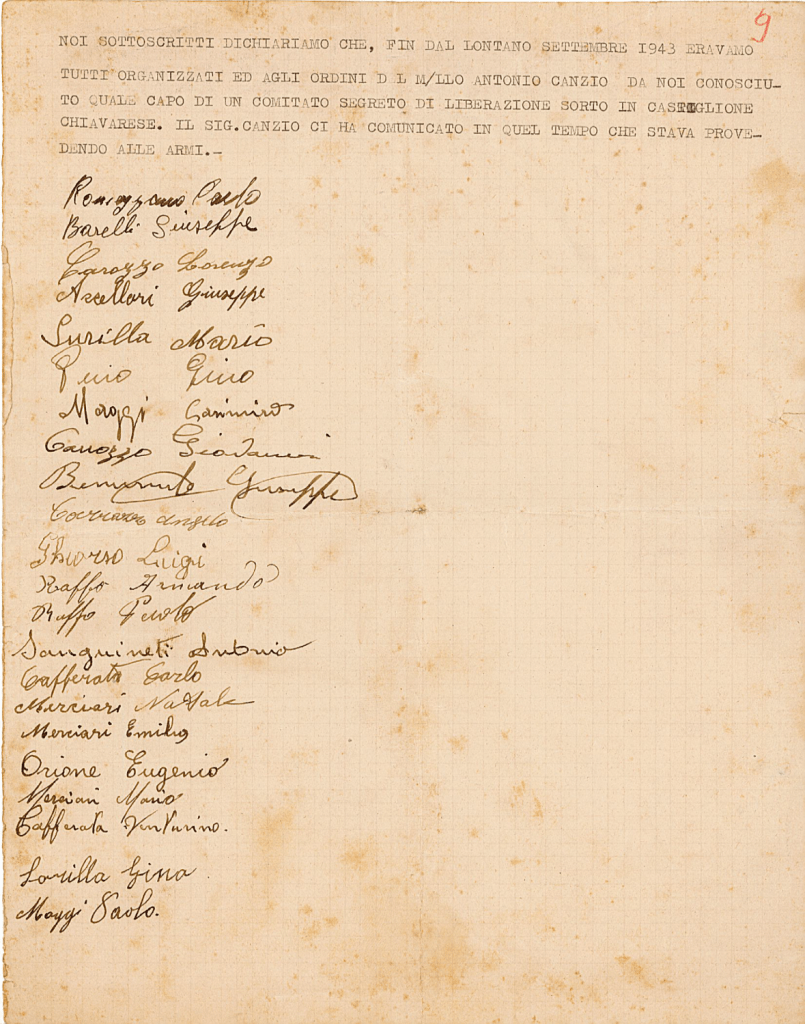 9
NOI SOTTOSCRITTI DICHIARIAMO CHE, FIN DAL LONTANO SETTEMBRE 1943 ERAVAMO
TUTTI ORGANIZZATI ED AGLI ORDINI D L M/LLO ANTONIO CANZIO DA NOI CONOSCIU-
TO QUALE CAPO DI UN COMITATO SEGRETO DI LIBERAZIONE SORTO IN CASTIGLIONE
CHIAVARESE. IL SIG.CANZIO CI HA COMUNICATO IN QUEL TEMPO CHE STAVA PROVE-
DENDO ALLE ARMI.-
Barelli Giuseppe
Carozzo Lorenzo
Giuseppe
Surilla Mario
Gino
Maggi Casimiro
Carozzo Giovanni
Benvenuto Giuseppe
Angelo
Ghiorzo Luigi
Raffo Armando
Raffo
Sanguineti Antonio
Cafferata Carlo
Merciari Natale
Merciari Emilio
Orione Eugenio
Merciari Mario
Cafferata Venturino.
Sorilla Gino
Maggi Paolo.